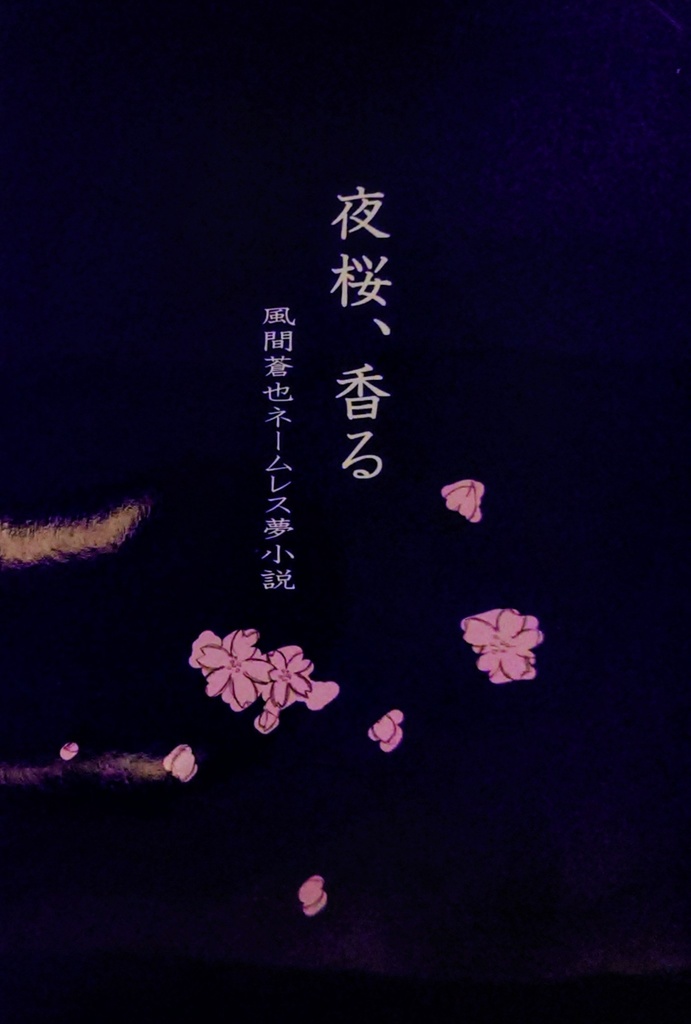 夜桜、香る
風間蒼也ネームレス夢小説